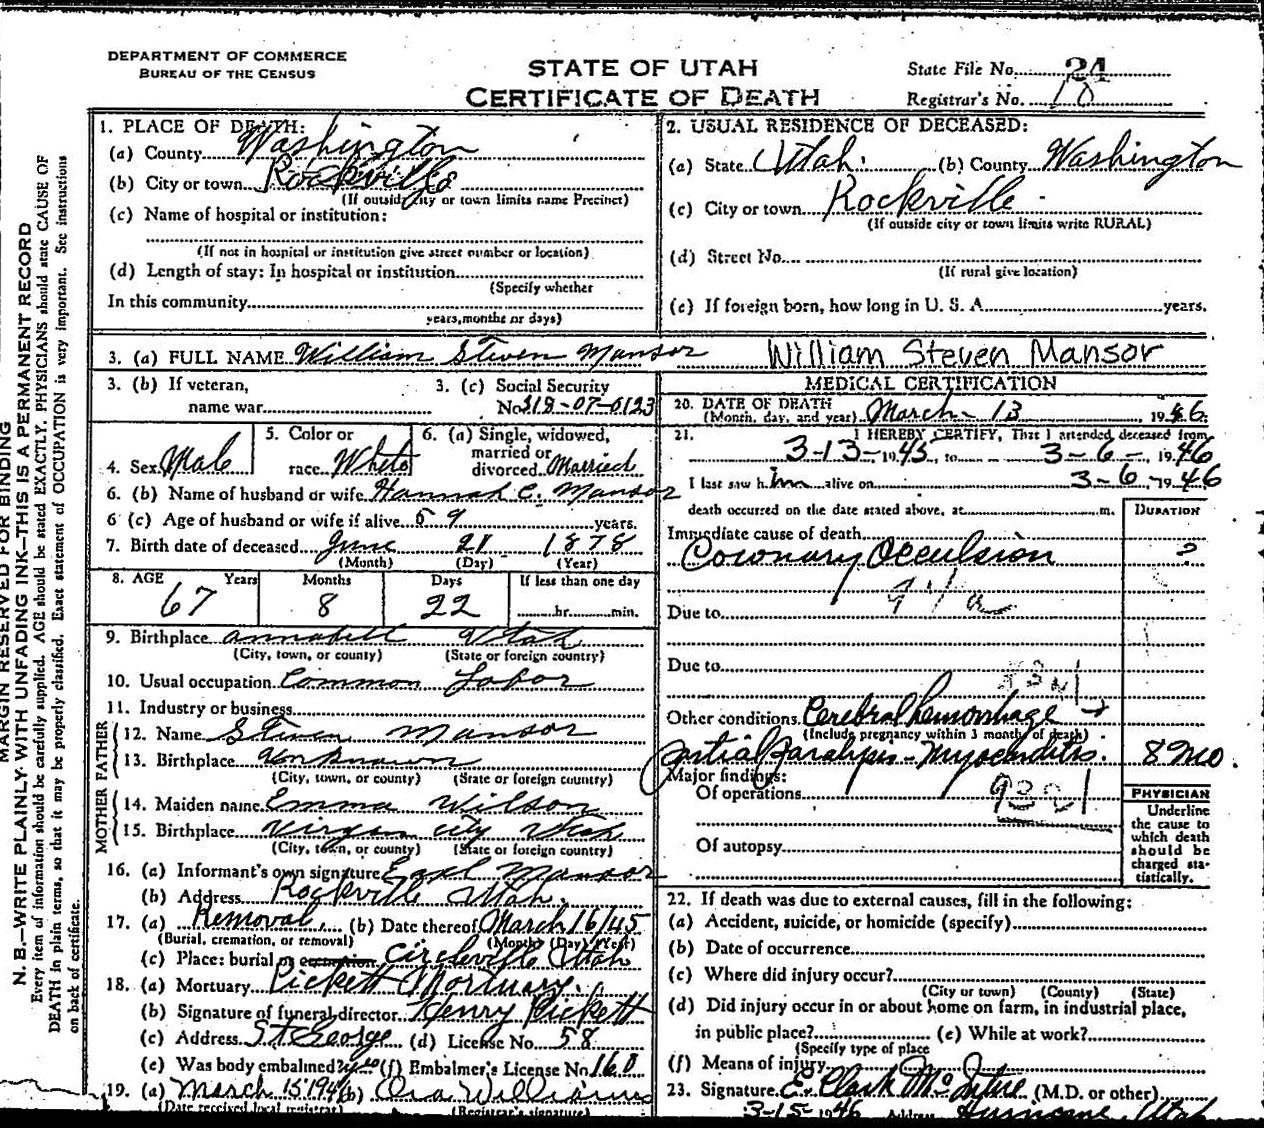 DEPARTMENT OF COMMERCE
BUREAU OF THE CENSUS
STATE OF UTAH
CERTIFICATE OF DEATH
State File No. 24
Registrar's No. 10
MARGIN RESERVED FOR BINDING
N. B.—WRITE PLAINLY WITH UNFADING INK—THIS IS A PERMANENT RECORD
Every item of information should be carefully supplied. AGE should be stated EXACTLY. PHYSICIANS should state CAUSE OF
DEATH in plain terms, so that it may be properly classified. Exact statement of OCCUPATION is very important. See instructions
on back of certificate.
1. PLACE OF DEATH:
(a) County Washington
(b) City or town Rockville
(If outside city or town limits name Precinct)
(c) Name of hospital or institution:
(If not in hospital or institution give street number or location)
(d) Length of stay: In hospital or institution
(Specify whether
In this community
years, months or days)
2. USUAL RESIDENCE OF DECEASED:
(a) State Utah. (b) County Washington
(c) City or town Rockville
(If outside city or town limits write RURAL)
(d) Street No.
(If rural give location)
(e) If foreign born, how long in U. S. A. years.
3. (a) FULL NAME William Steven Mansor William Steven Mansor
3. (b) If veteran,
name war
3. (c) Social Security
No. 518-07-0123
4. Sex Male
5. Color or
race White
6. (a) Single, widowed,
married or
divorced Married
6. (b) Name of husband or wife Hannah C. Mansor
6 (c) Age of husband or wife if alive 59 years.
7. Birth date of deceased June 21 1878
(Month) (Day) (Year)
8. AGE Years Months Days If less than one day
67 8 22 hr. min.
9. Birthplace Annabell Utah
(City, town, or county) (State or foreign country)
10. Usual occupation Common Labor
11. Industry or business
FATHER
12. Name Steven Mansor
13. Birthplace Unknown
(City, town, or county) (State or foreign country)
MOTHER
14. Maiden name Emma Wilson
15. Birthplace Virgin City Utah
(City, town, or county) (State or foreign country)
16. (a) Informant's own signature Earl Mansor
(b) Address Rockville Utah.
17. (a) Removal, (b) Date thereof March 16/45
(Burial, cremation, or removal) (Month) (Day) (Year)
(c) Place: burial or cremation Circleville Utah
18. (a) Mortuary Pickett Mortuary.
(b) Signature of funeral director Henry Pickett
(c) Address St George (d) License No. 58
(e) Was body embalmed? yes (f) Embalmer's License No. 160
19. (a) March 15 1946 (b) Ora Williams
(Date received local registrar) (Registrar's signature)
MEDICAL CERTIFICATION
20. DATE OF DEATH
(Month, day, and year) March - 13, 1946.
21. I HEREBY CERTIFY, That I attended deceased from
3-13- 1945, to 3-6-, 1946
I last saw him alive on 3-6-, 1946
death occurred on the date stated above, at m.
DURATION
Immediate cause of death
Coronary Occulsion ?
94a
Due to
Due to
Other conditions Cerebral hemorrhage
(Include pregnancy within 3 months of death)
partial paralysis - Myocarditis. 8 mo.
Major findings:
Of operations 9321
Of autopsy
PHYSICIAN
Underline
the cause to
which death
should be
charged sta-
tistically.
22. If death was due to external causes, fill in the following:
(a) Accident, suicide, or homicide (specify)
(b) Date of occurrence
(c) Where did injury occur?
(City or town) (County) (State)
(d) Did injury occur in or about home on farm, in industrial place,
in public place? (e) While at work?
(Specify type of place
(f) Means of injury
23. Signature E. Clark McIntire (M.D. or other)
3-15- 1946 Address Hurricane, Utah